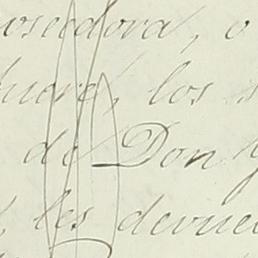 oseedora, o
fuere, los s
de Don
les devue